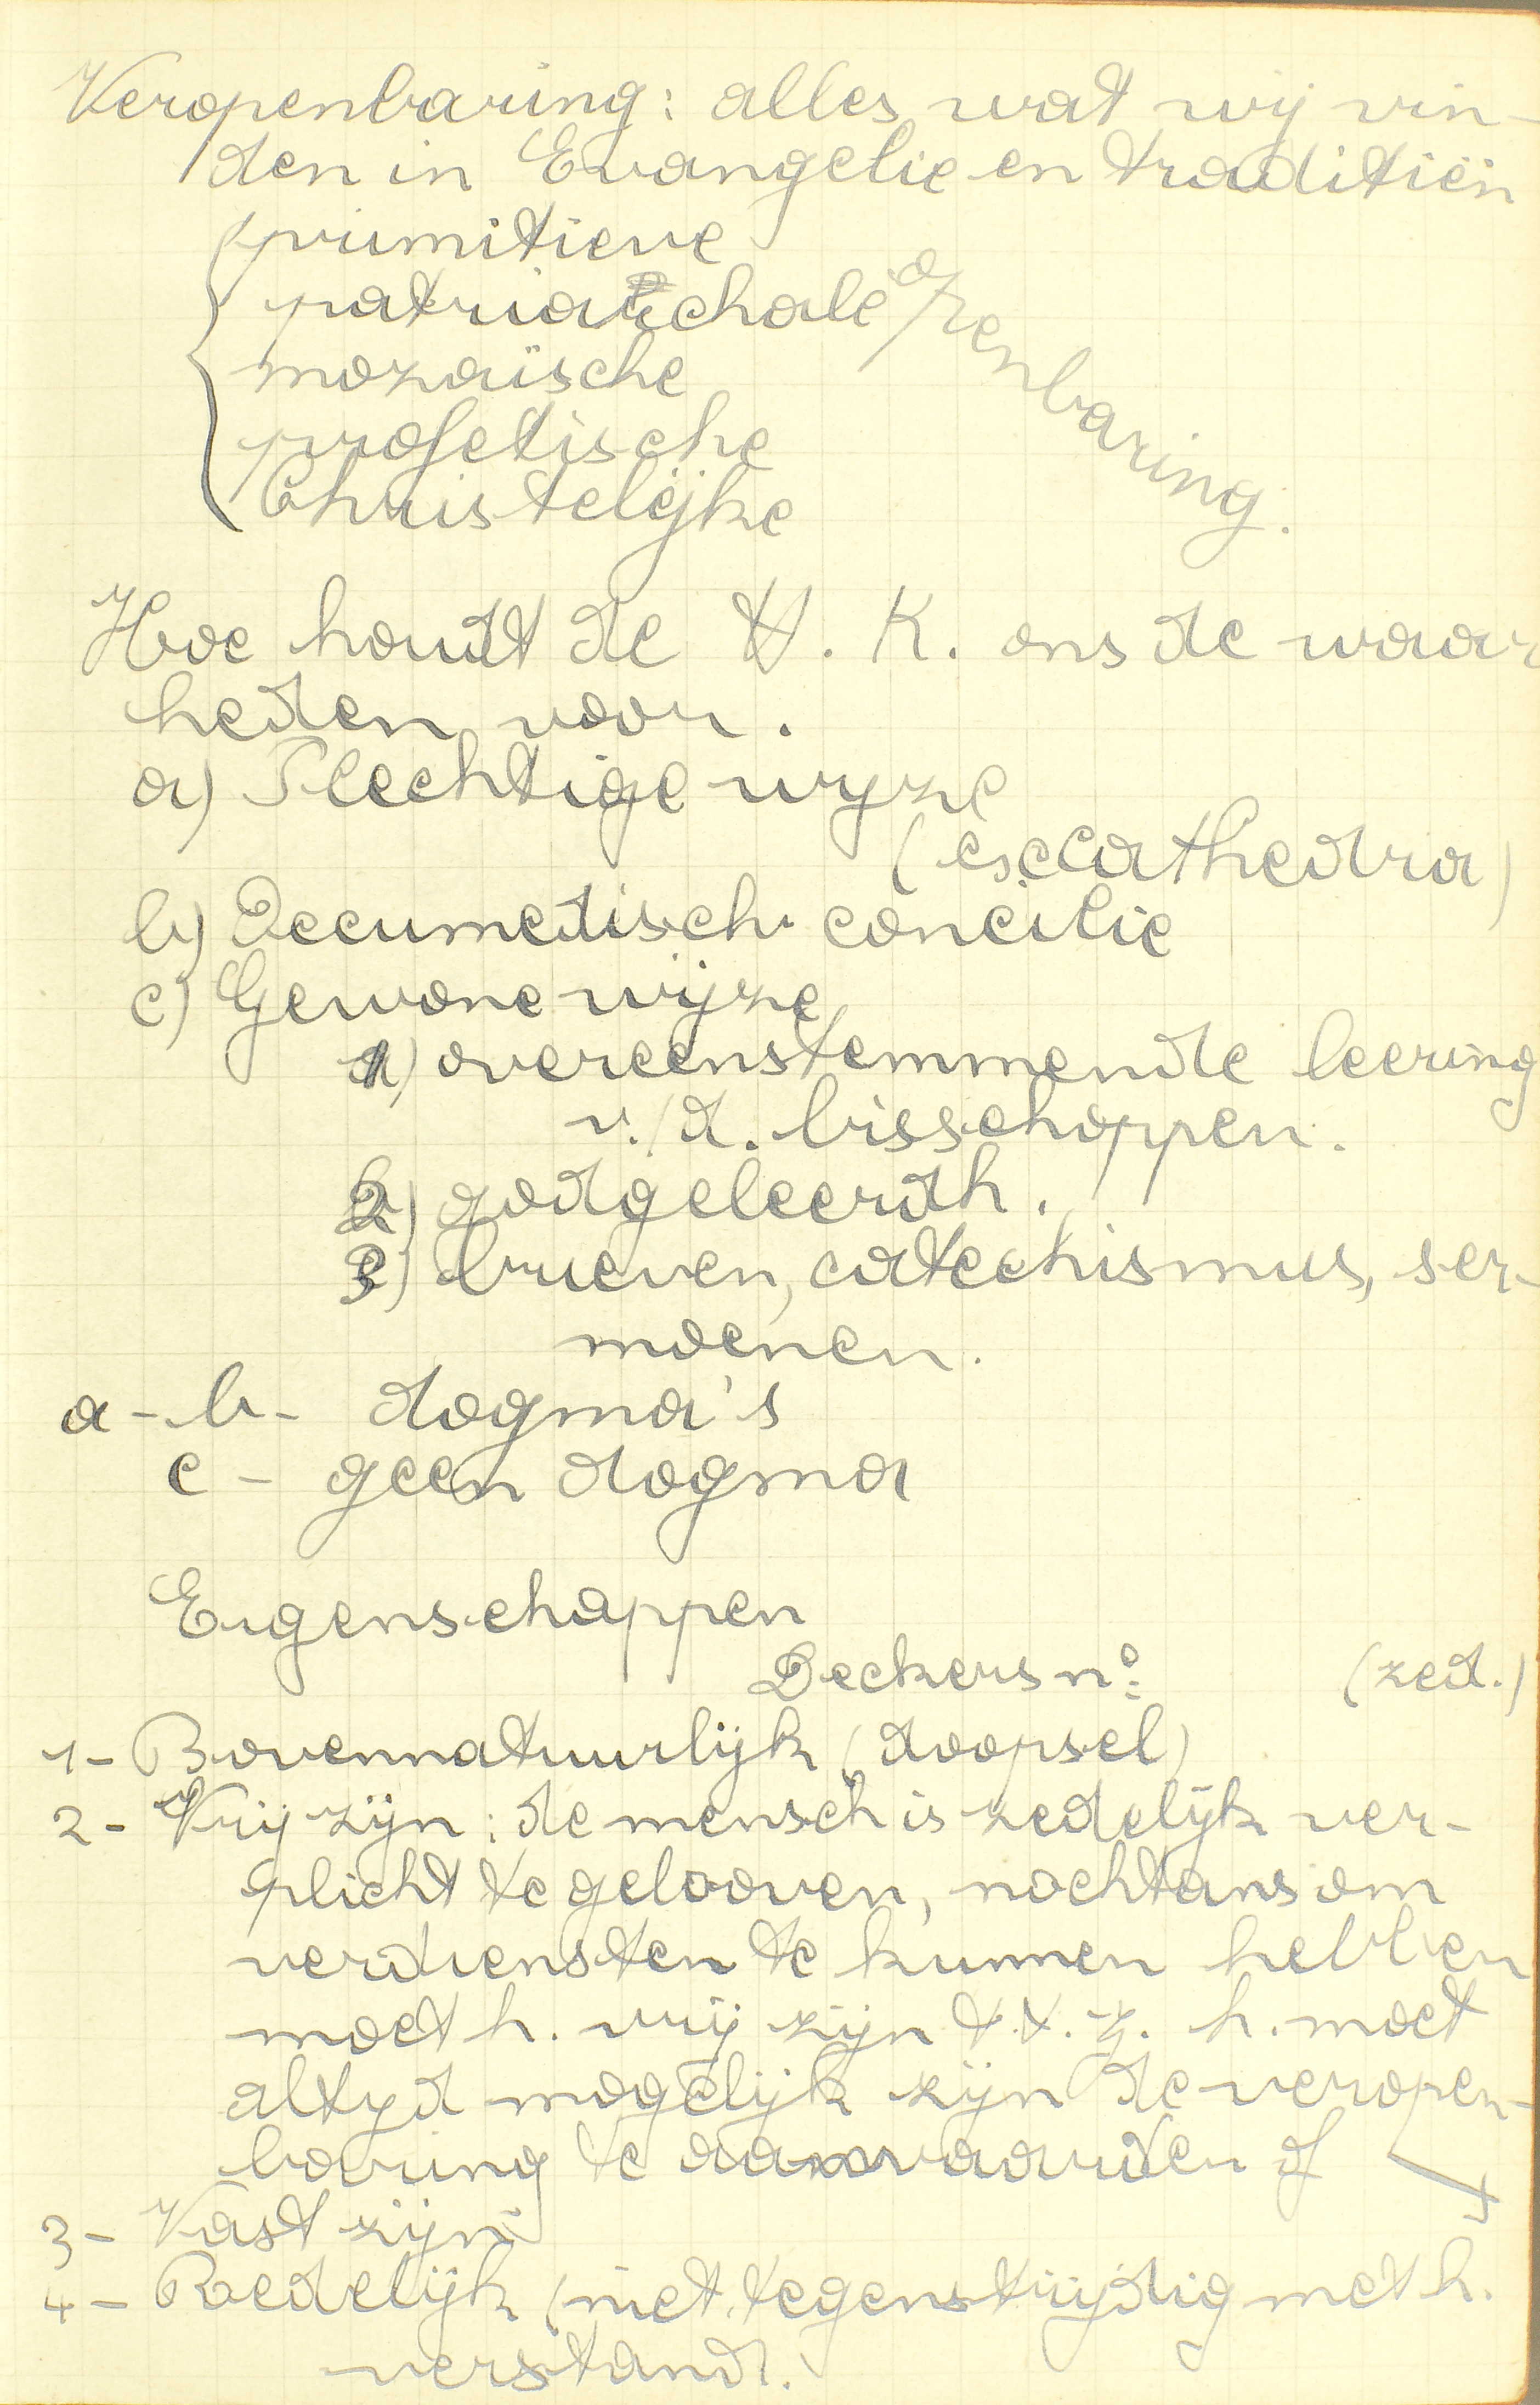 Veropenbaring: alles wat wij vin-
den in Evangelie en traditiën
primitieve
patriarchale openbaring.
mozaïsche
profetische
Christelijke
Hoe houdt de H. K. ons de waar
heden voor.
a) Plechtige wyze
(ex cathedra)
b) Oecumetisch concilie
c) Gewone wijze
1) overeenstemmende leering
v./d. bisschoppen.
2) godgeleerdh.
3) brieven, catechismus, ser-
moenen.
a - b - dogma's
c - geen dogma
Eigenschappen
Beckers nº (zed.)
1- Bovennatuurlijk (doopsel)
2- Vrij zijn: de mensch is zedelijk ver-
plicht te gelooven, nochtans om
verdiensten te kunnen hebben
moet h. vrij zijn t.t.z. h. moet
altyd mogelijk zijn de veropen-
baring te aanvaarden of
3- Vast zijn
4- Redelijk (niet tegenstrijdig met h.
verstand.